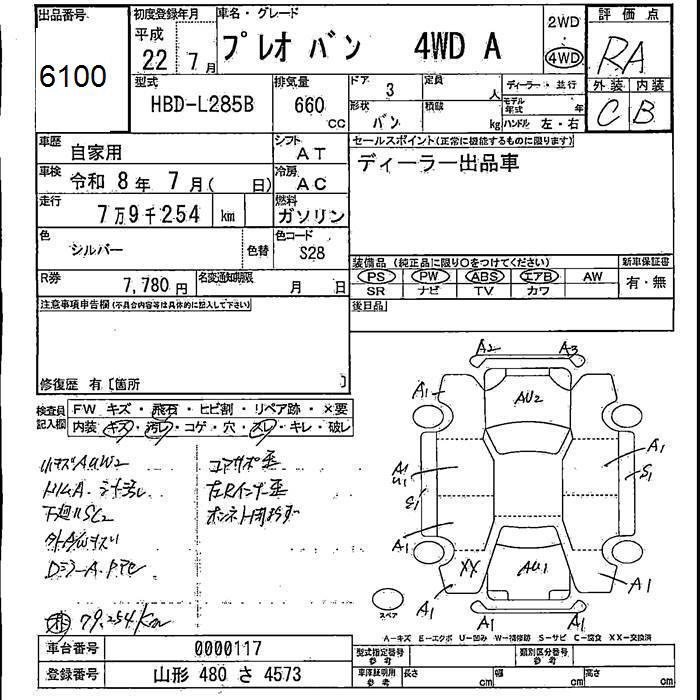 出品番号
6100
初度登録年月
平成
22 7月
車名・グレード
プレオ バン 4WD A
2WD
・
4WD
評価点
RA
外装 内装
C B
型式
HBD-L285B
排気量
660 cc
ドア 3
定員 人
形状 バン
積載 kg
ディーラー・並行
モデル年式 年
ハンドル 左・右
車歴
自家用
シフト
AT
車検
令和 8年 7月( 日)
冷房
AC
走行
7万9千254 km
燃料
ガソリン
色
シルバー
色替
色コード
S28
R券
7,780円
名変通知期限
月 日
セールスポイント(正常に機能するものに限ります)
ディーラー出品車
装備品(純正品に限り○をつけてください)
新車保証書
PS PW ABS エアB AW
有・無
SR ナビ TV カワ
後日品
注意事項申告欄(不具合内容等は具体的に記入して下さい)
修復歴 有〔箇所 〕
検査員記入欄
FW キズ・飛石・ヒビ割・リペア跡・×要
内装・キズ・汚レ・コゲ・穴・スレ・キレ・破レ
小キズAUW2
コアサポ歪
トリムA
左Rインナー歪
下廻りSC2
79,254km
A2 A3
A1 AU2 A1
A1 A1
U1 S1
E1
A1
XX AU1
A1 A1
A1 A1
スペア
A-キズ E-エクボ U-凹み W-補修跡 S-サビ C-腐食 XX-交換済
車台番号
0000117
登録番号
山形 480 さ 4573
型式指定番号
参考
類別区分番号
参考
車庫証明用
参考
長さ cm
幅 cm
高さ cm